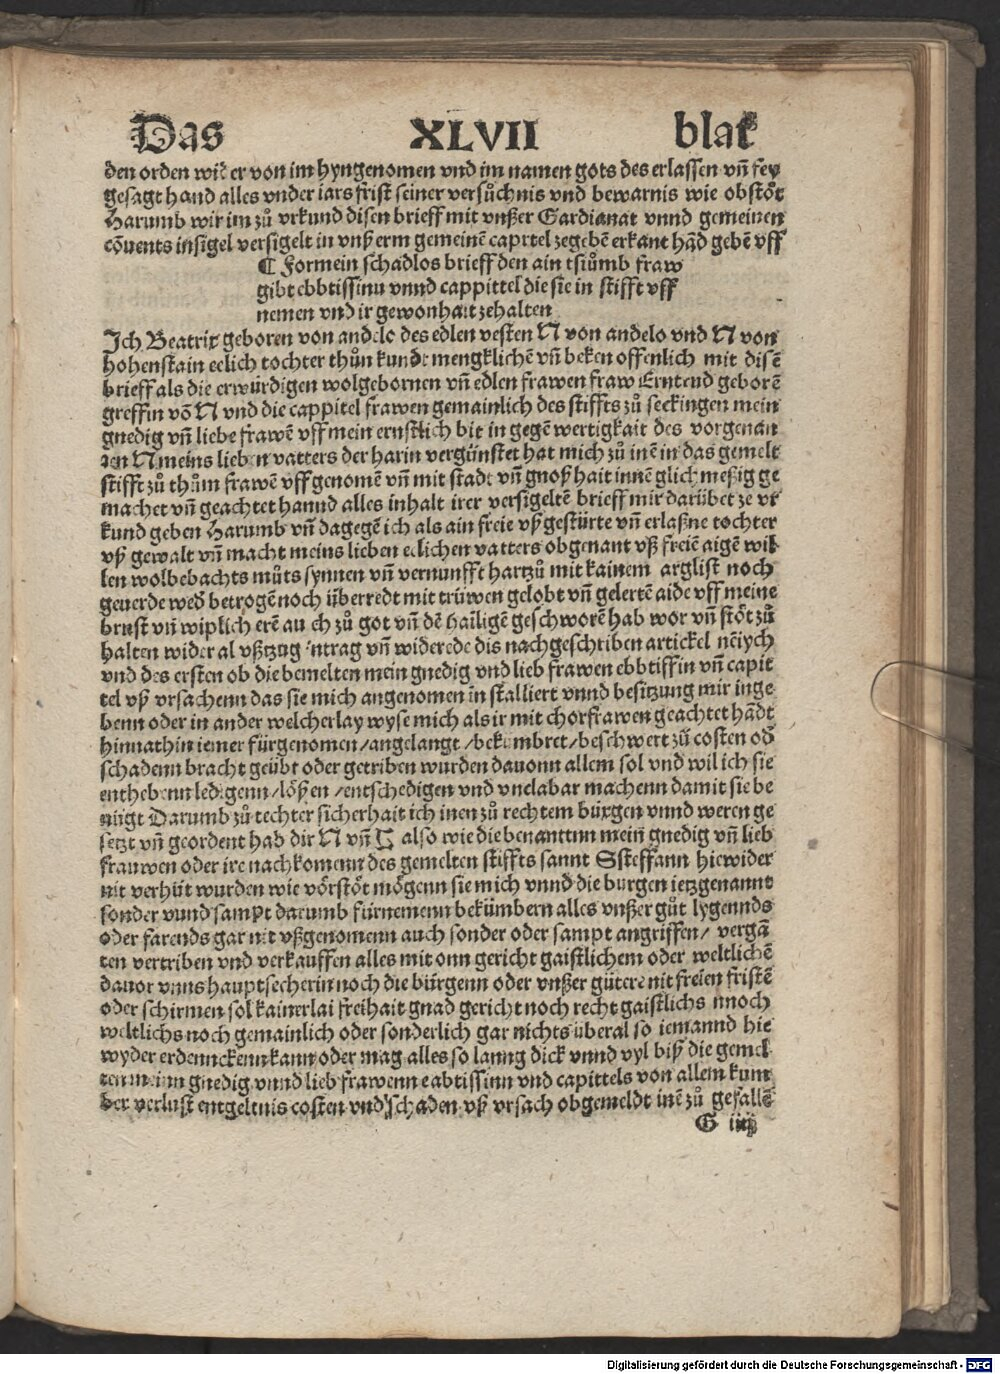 Das XLVII blat
den orden wid er von im hyngenomen vnd im namen gots des erlassen vn̄ fey
gesagt hand alles vnder iars frist seiner versůchnis vnd bewarnis wie obstöt
Harumb wir im zů vrkund disen brieff mit vnßer Gardianat vnnd gemeinen
cōuents insigel versigelt in vnß erm gemeinē caprtel zegebē erkant hād gebē vff
¶ Formein schadlos brieff den ain tsiůmb fraw
gibt ebbtissinu vnnd cappittel die sie in stifft vff
nemen vnd ir gewonhait zehalten
Jch Beatrix geboren von andelo des edlen vesten N von andelo vnd N von
hohenstain eelich tochter thůn kundt mengklichē vn̄ beken offenlich mit disē
brieff als die erwürdigen wolgebornen vn̄ edlen frawen fraw Erntend geborē
greffin vō N vnd die cappitel frawen gemainlich des stiffts zů seckingen mein
gnedig vn̄ liebe frawē vff mein ernstlich bit in gegē wertigkait des vorgenan
ten N meins lieben vatters der harin vergünstet hat mich zů inē in das gemelt
stifft zů thům frawē vff genomē vn̄ mit stadt vn̄ gnoß hait innē glich meßig ge
machet vn̄ geachtet hannd alles inhalt irer versigeltē brieff mir darübet ze vr
kund geben Harumb vn̄ dagegē ich als ain freie vß gestürte vn̄ erlaßne tochter
vß gewalt vn̄ macht meins lieben eelichen vatters obgenant vß freiē aigē wil
len wolbebachts můts synnen vn̄ vernunfft hartzů mit kainem arglist noch
geuerde wed betrogē noch überredt mit trüwen gelobt vn̄ gelertē aide vff meine
brust vn̄ wiplich erē au ch zů got vn̄ dē hailigē geschworē hab wor vn̄ stöt zů
halten wider al vßtzug intrag vn̄ widerede dis nachgeschriben artickel nēiych
vnd des ersten ob die bemelten mein gnedig vnd lieb frawen ebbtissin vn̄ capit
tel vß vrsachenn das sie mich angenomen in stalliert vnnd besitzung mir inge
benn oder in ander welcherlay wyse mich als ir mit chorfrawen geachtet hādt
hinnathin iemer fürgenomen/angelangt/bekumbret/beschwert zů costen od
schadenn bracht geübt oder getriben wurden dauonn allem sol vnd wil ich sie
enthebenn ledigenn/lößen/entschedigen vnd vnclabar machenn damit sie be
nügt Darumb zů techter sicherhait ich inen zů rechtem bürgen vnnd weren ge
setzt vn̄ geordent hab dir N vn̄ G also wie die benanttnn mein gnedig vn̄ lieb
frauwen oder ire nachkomenn des gemelten stiffts sannt Ssteffann hiewider
nit verhüt wurden wie vörstöt mögenn sie mich vnnd die burgen ietzgenannt
sonder vund sampt darumb fürnemenn bekümbern alles vnßer gůt lygennds
oder farends gar nit vßgenomenn auch sonder oder sampt angriffen/ vergā
ten vertriben vnd verkauffen alles mit onn gericht gaistlichem oder weltlichē
dauor vnns hauptsecherin noch die bürgenn oder vnßer gütere nit freien fristē
oder schirmen sol kainerlai freihait gnad gericht noch recht gaistlichs nnoch
weltlichs noch gemainlich oder sonderlich gar nichts überal so iemannd hie
wyder erdennckenn kann oder mag alles so lanng dick vnnd vyl biß die gemel
ten meinn gnedig vnnd lieb frawenn eabtissinn vnd capittels von allem kum
ber verlust entgeltnis costen vnd schaden vß vrsach obgemeldt inē zů gefallē
G iiij
Digitalisierung gefördert durch die Deutsche Forschungsgemeinschaft - DFG